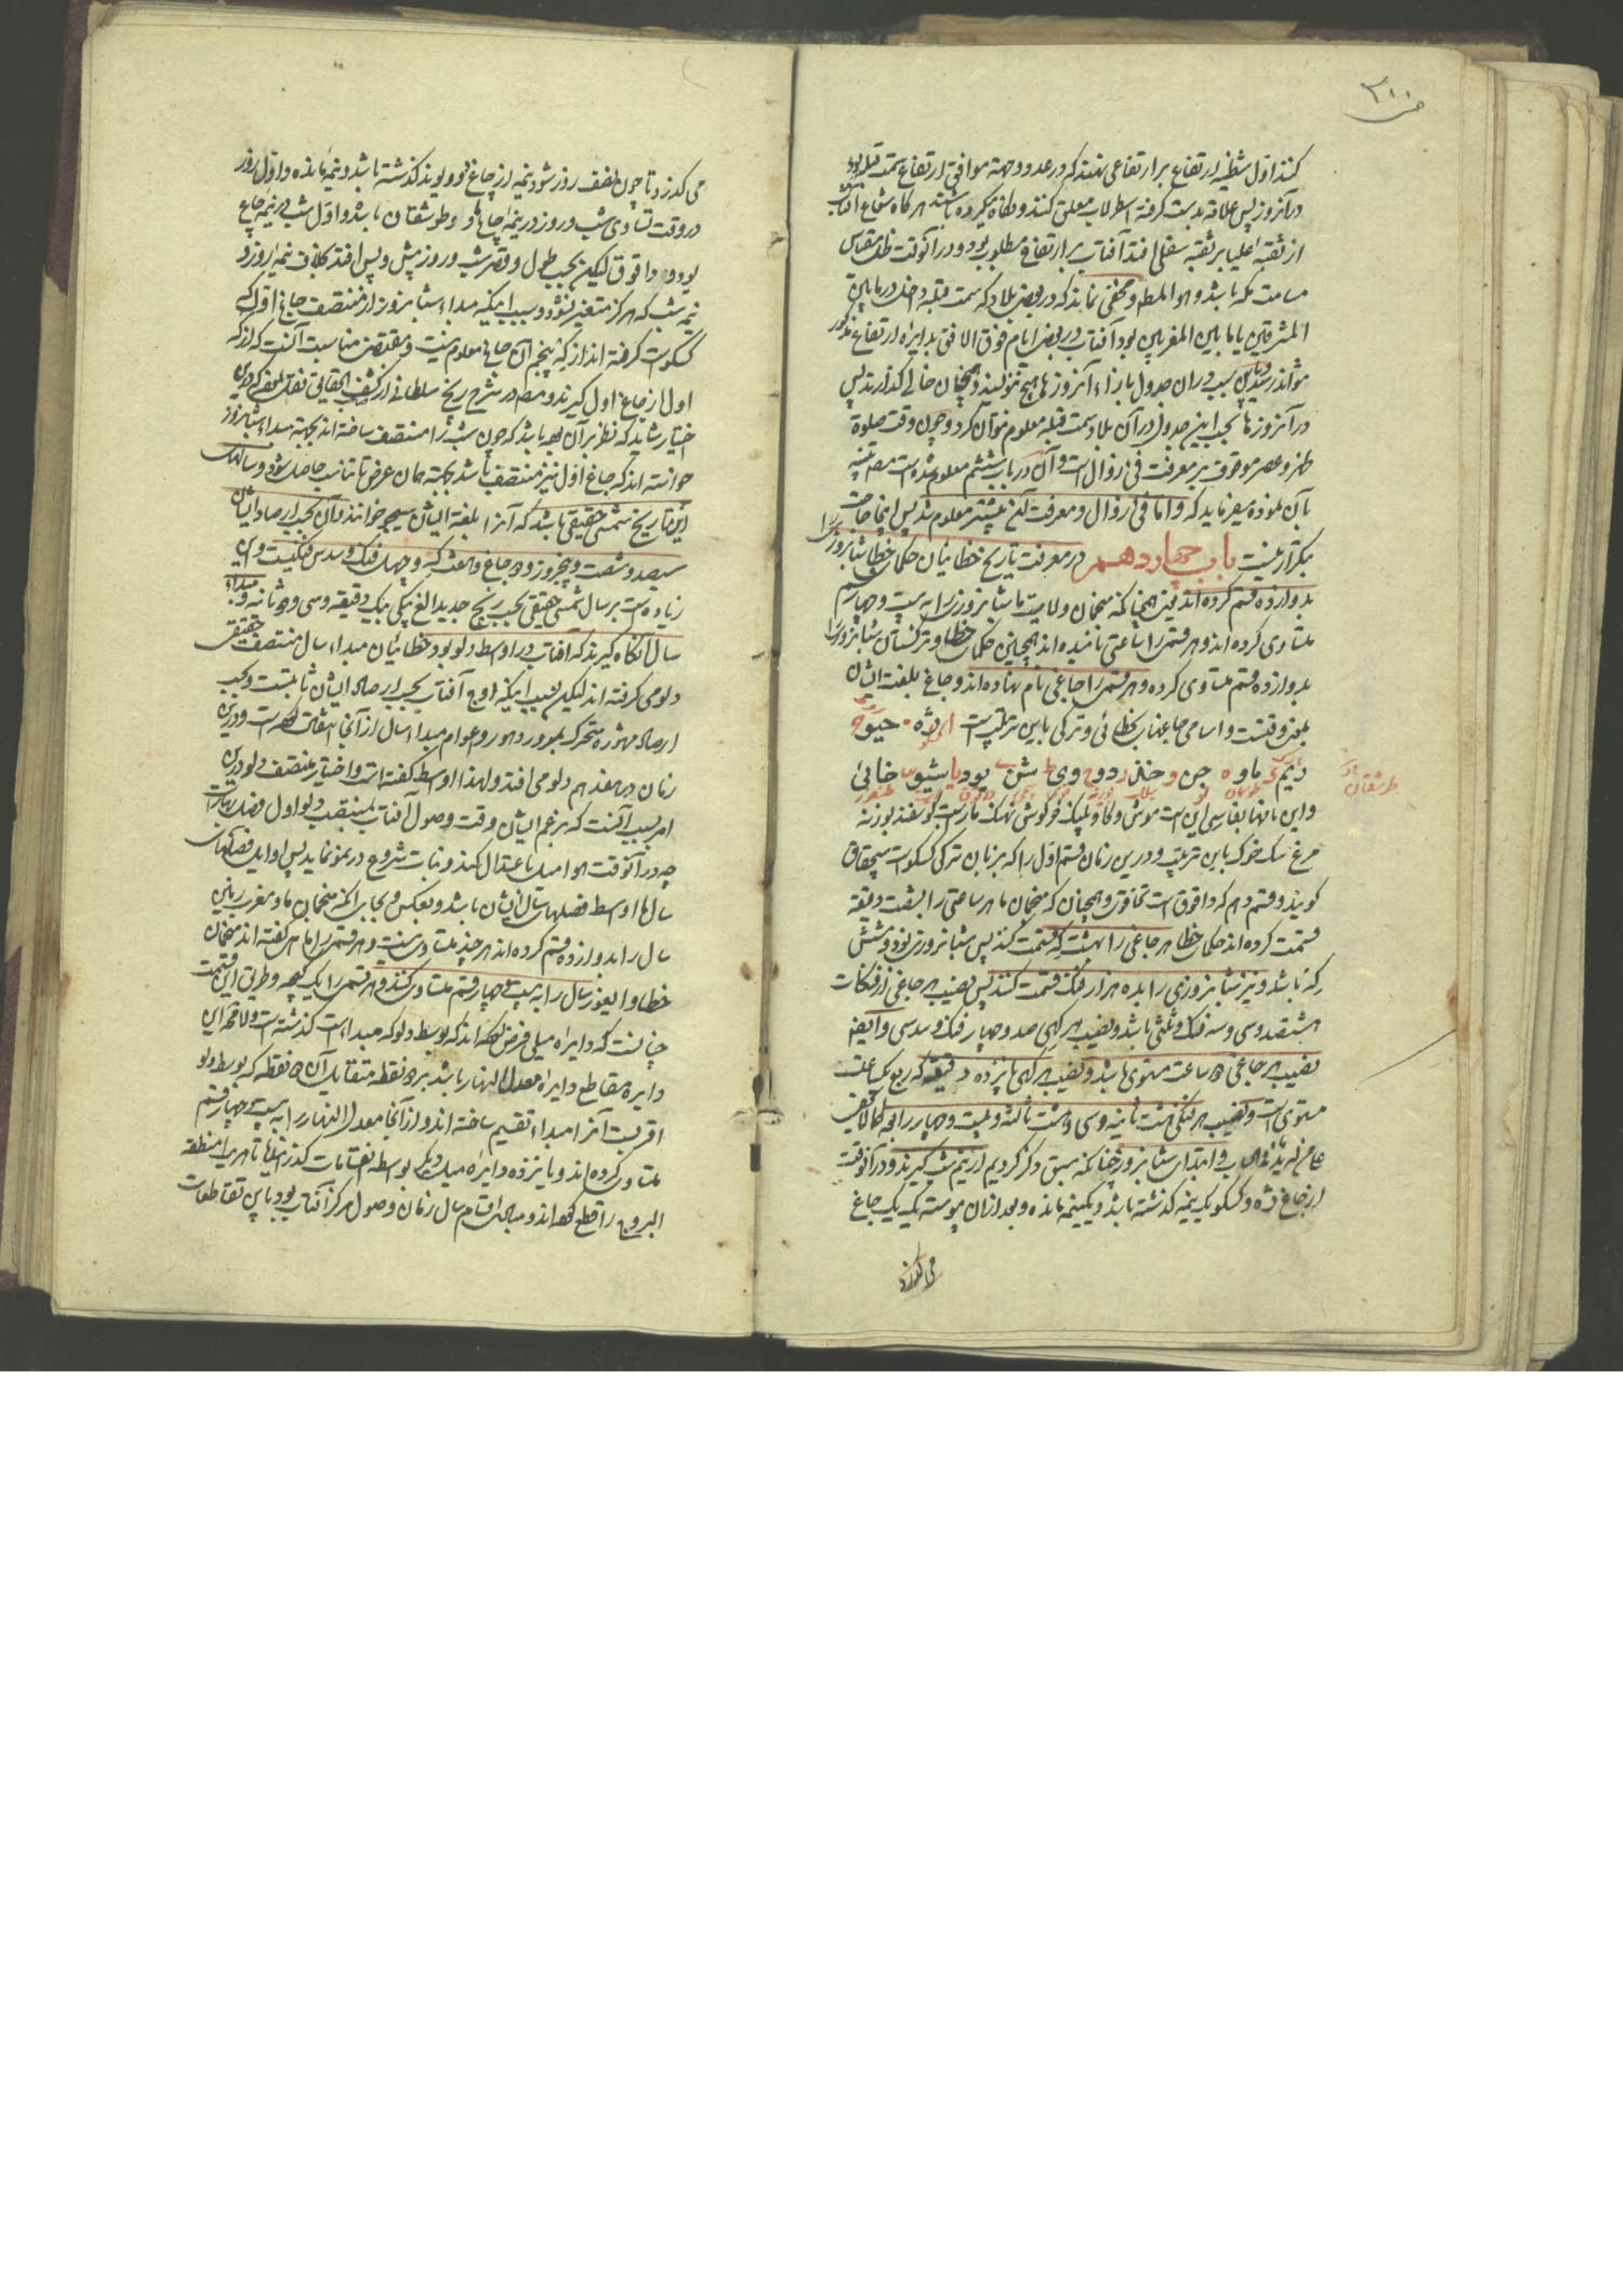 کنند اول شظیه ارتفاع بر ارتفاعی نهند که در عدد و جهة موافق ارتفاع سمت قبله بود
در آنروز پس علاقه بدست گرفته اسطرلاب معلق کنند و نگاه میکرده باشند هر گاه شعاع آفتاب
از ثقبه علیا بر ثقبه سفلی افتد آفتاب بر ارتفاع مطلوب بود و در آنوقت ظل مقیاس
مسامت مکه باشد و هو المط و مخفی نماند که در بعض بلاد که سمت قبله داخل در مابین
المشرقین یا مابین المغربین بود آفتاب در بعض ایام فوق الافق بدایره ارتفاع مذکور
نتواند رسید باین سبب در ان جدول بازاء آنروزها هیچ ننویسند و همچنان خالی گذارند پس
در آنروزها بحسب این جدول در آن بلاد سمت قبله معلوم نتوان کرد و چون وقت صلوة
ظهر و عصر موقوف بر معرفت فئ زوال است و آن در باب ششم معلوم شده است مصه تنبیه
بآن نموده میفرماید که و اما فئ زوال و معرفت آن پیشتر معلوم شد پس اینجا حاجت
بتکرار نیست باب چهاردهم در معرفت تاریخ خطائیان حکماء خطا شبانروز را
بدوازده قسم کرده اند یعنی همچنانکه منجمان ولایت ما شبانروز را به بیست و چهار قسم
متساوی کرده اند و هر قسم را ساعتی نامیده اند همچنین حکماء خطا و ترکستان شبانروز را
بدوازده قسم متساوی کرده و هر قسم را چاغی نام نهاده اند و چاغ بلغت ایشان
بمعنی وقتست و اسامی چاغها بخطائی و ترکی باین ترتیب است ژه چیو
یم ماو چن خن وو وی شن یو یا شیو خائ
و این نامها بفارسی این است موش و گاو و پلنگ خرگوش نهنگ مار اسب گوسفند بوزنه
مرغ سگ خوک باین ترتیب و در این زمان قسم اول را که بزبان ترکی کسکو است سچقان
گویند و قسم دهم که داقوق است تخاقوی و همچنان که منجمان ما هر ساعتی را بشصت دقیقه
قسمت کرده اند حکماء خطا هر چاغی را بهشت که قسمت کنند پس شبانروزی نود و شش
که باشد و نیز شبانروزی را بده هزار فنک قسمت کنند پس نصیب هر چاغی از فنکات
هشتصد و سی و سه فنک و ثلثی باشد و نصیب هر کهی صد و چهار فنک و سدسی و ایضا
نصیب هر چاغی دو ساعت مستوی باشد و نصیب هر کهی پانزده دقیقه که ربع یکساعت
مستوی است و نصیب هر فنکی هشت ثانیه و سی و هشت ثالثه و بیست و چهار رابعه کما لایخفی
علی من له ید فی الحساب و ابتداء شبانروز چنانکه سبق ذکر کردیم از نیم شب گیرند و در آنوقت
از چاغ ژه و کسکو یک نیمه گذشته باشد و یکنیمه مانده و بعد از ان پیوسته یک یک چاغ
می‌گذرد
می گذرد تا چون نصف روز شود نیمه از چاغ وو و یوند گذشته باشد و نیمه مانده و اول روز
در وقت تساوی شب و روز در نیمه چاغ ماو و طوشقان باشد و اول شب در نیمه چاغ
یوو و داقوق لیکن بحسب طول و قصر شب و روز پیش و پس افتد بخلاف نیمه روز و
نیمه شب که هرگز متغیر نشود و سبب اینکه مبداء شبانروز از منتصف چاغ اول که
کسکو است گرفته اند از که پنجم آن چاغ معلوم نیست و مقتضی مناسبت آنست که از که
اول از چاغ اول گیرند و مصه در شرح زیج سلطانی از کشف الحقایق نقل نموده که درین
اختیار شاید که نظر بر آن بوده باشد که چون شب را منتصف ساخته اند بجهة مبداء شبانروز
خواسته اند که چاغ اول نیز منتصف باشد بجهة همان غرض تا تناسب حاصل شود و سالهاء
این تاریخ شمسی حقیقی باشد که آنرا بلغة ایشان سیجر خوانند و آن بحسب ارصاد ایشان
سیصد و شصت و پنجروز و دو چاغ و هفت که و چهل فنک و سدس فنکیست و این
زیاده است بر سال شمسی حقیقی بحسب زیج جدید الغ بیکی بیک دقیقه و سی و دو ثانیه و مبداء
سال آنگاه گیرند که آفتاب در اواسط دلو بود خطائیان مبداء سال منتصف حقیقی
دلو می گرفته اند لیکن بسبب اینکه اوج آفتاب بحسب ارصاد ایشان ثابتست و بحسب
ارصاد مشهوره متحرک بمرور دهور و اعوام مبداء سال از آنجا انتقال کرده است و درین
زمان در هفدهم دلو می افتد و لهذا اواسط گفته است و اختیار منتصف دلو درین
امر بسبب آنست که بزعم ایشان وقت وصول آفتاب بمنتصف دلو اول فصل بهار است
چه در آنوقت هوا میل باعتدال کند و نبات شروع در نمو نماید پس اوایل فصلهاء
سال ما اواسط فصلهاء سال ایشان باشد و بعکس و بجای آنکه منجمان ما و مغرب زمین
سال را بدوازده قسم کرده اند هر چند متساوی نیست و هر قسم را ماهی گفته اند منجمان
خطا و ایغور سال را به بیست و چهار قسم متساوی کنند و هر قسم را یک کیچه و طریق این قسمت
چنانست که دایره میلی فرض کرده اند که بوسط دلو که مبداء است گذشته است و لامحاله این
دایره مقاطع دایره معدل النهار باشد بر دو نقطه متقابل آن دو نقطه که بوسط دلو
اقربست آنرا مبداء تقسیم ساخته اند و از آنجا معدل النهار را به بیست و چهار قسم
متساوی کرده اند و یازده دایره میل دیگر بواسطه انقسامات گذرانیده تا هر یک منطقه
البروج را قطع کرده اند و مبادی اقسام سال زمان وصول مرکز آفتاب بود باین تقاطعات